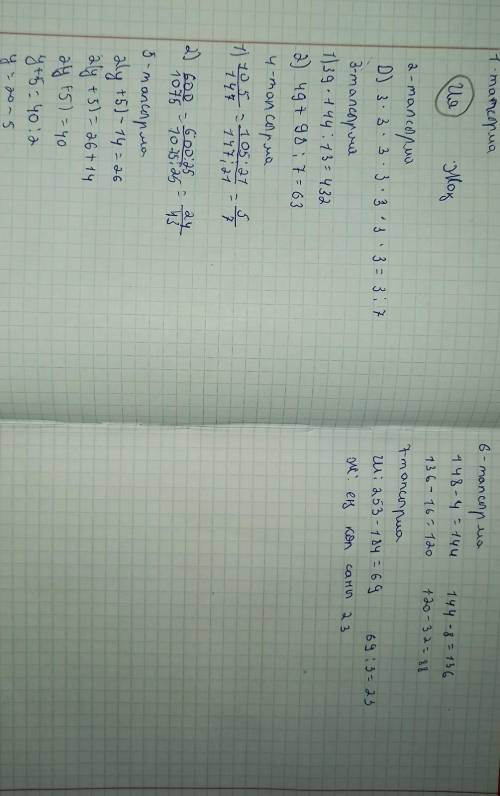 1-тапсырма
Иә Жоқ
2-тапсырма
D) 3 · 3 · 3 · 3 · 3 · 3 · 3 = 3 : 7
3-тапсырма
1) 39 · 144 : 13 = 432
2) 49 + 98 : 7 = 63
4-тапсырма
1) 105/147 = 105:21/147:21 = 5/7
2) 600/1075 = 600:25/1075:25 = 24/43
5-тапсырма
2(y + 5) - 14 = 26
2(y + 5) = 26 + 14
2(y + 5) = 40
y + 5 = 40 : 2
y = 20 - 5
6-тапсырма
148 - 4 = 144 144 - 8 = 136
136 - 16 = 120 120 - 32 = 88
7-тапсырма
Ш: 253 - 184 = 69 69 : 3 = 23
Ж: ең көп саны 23